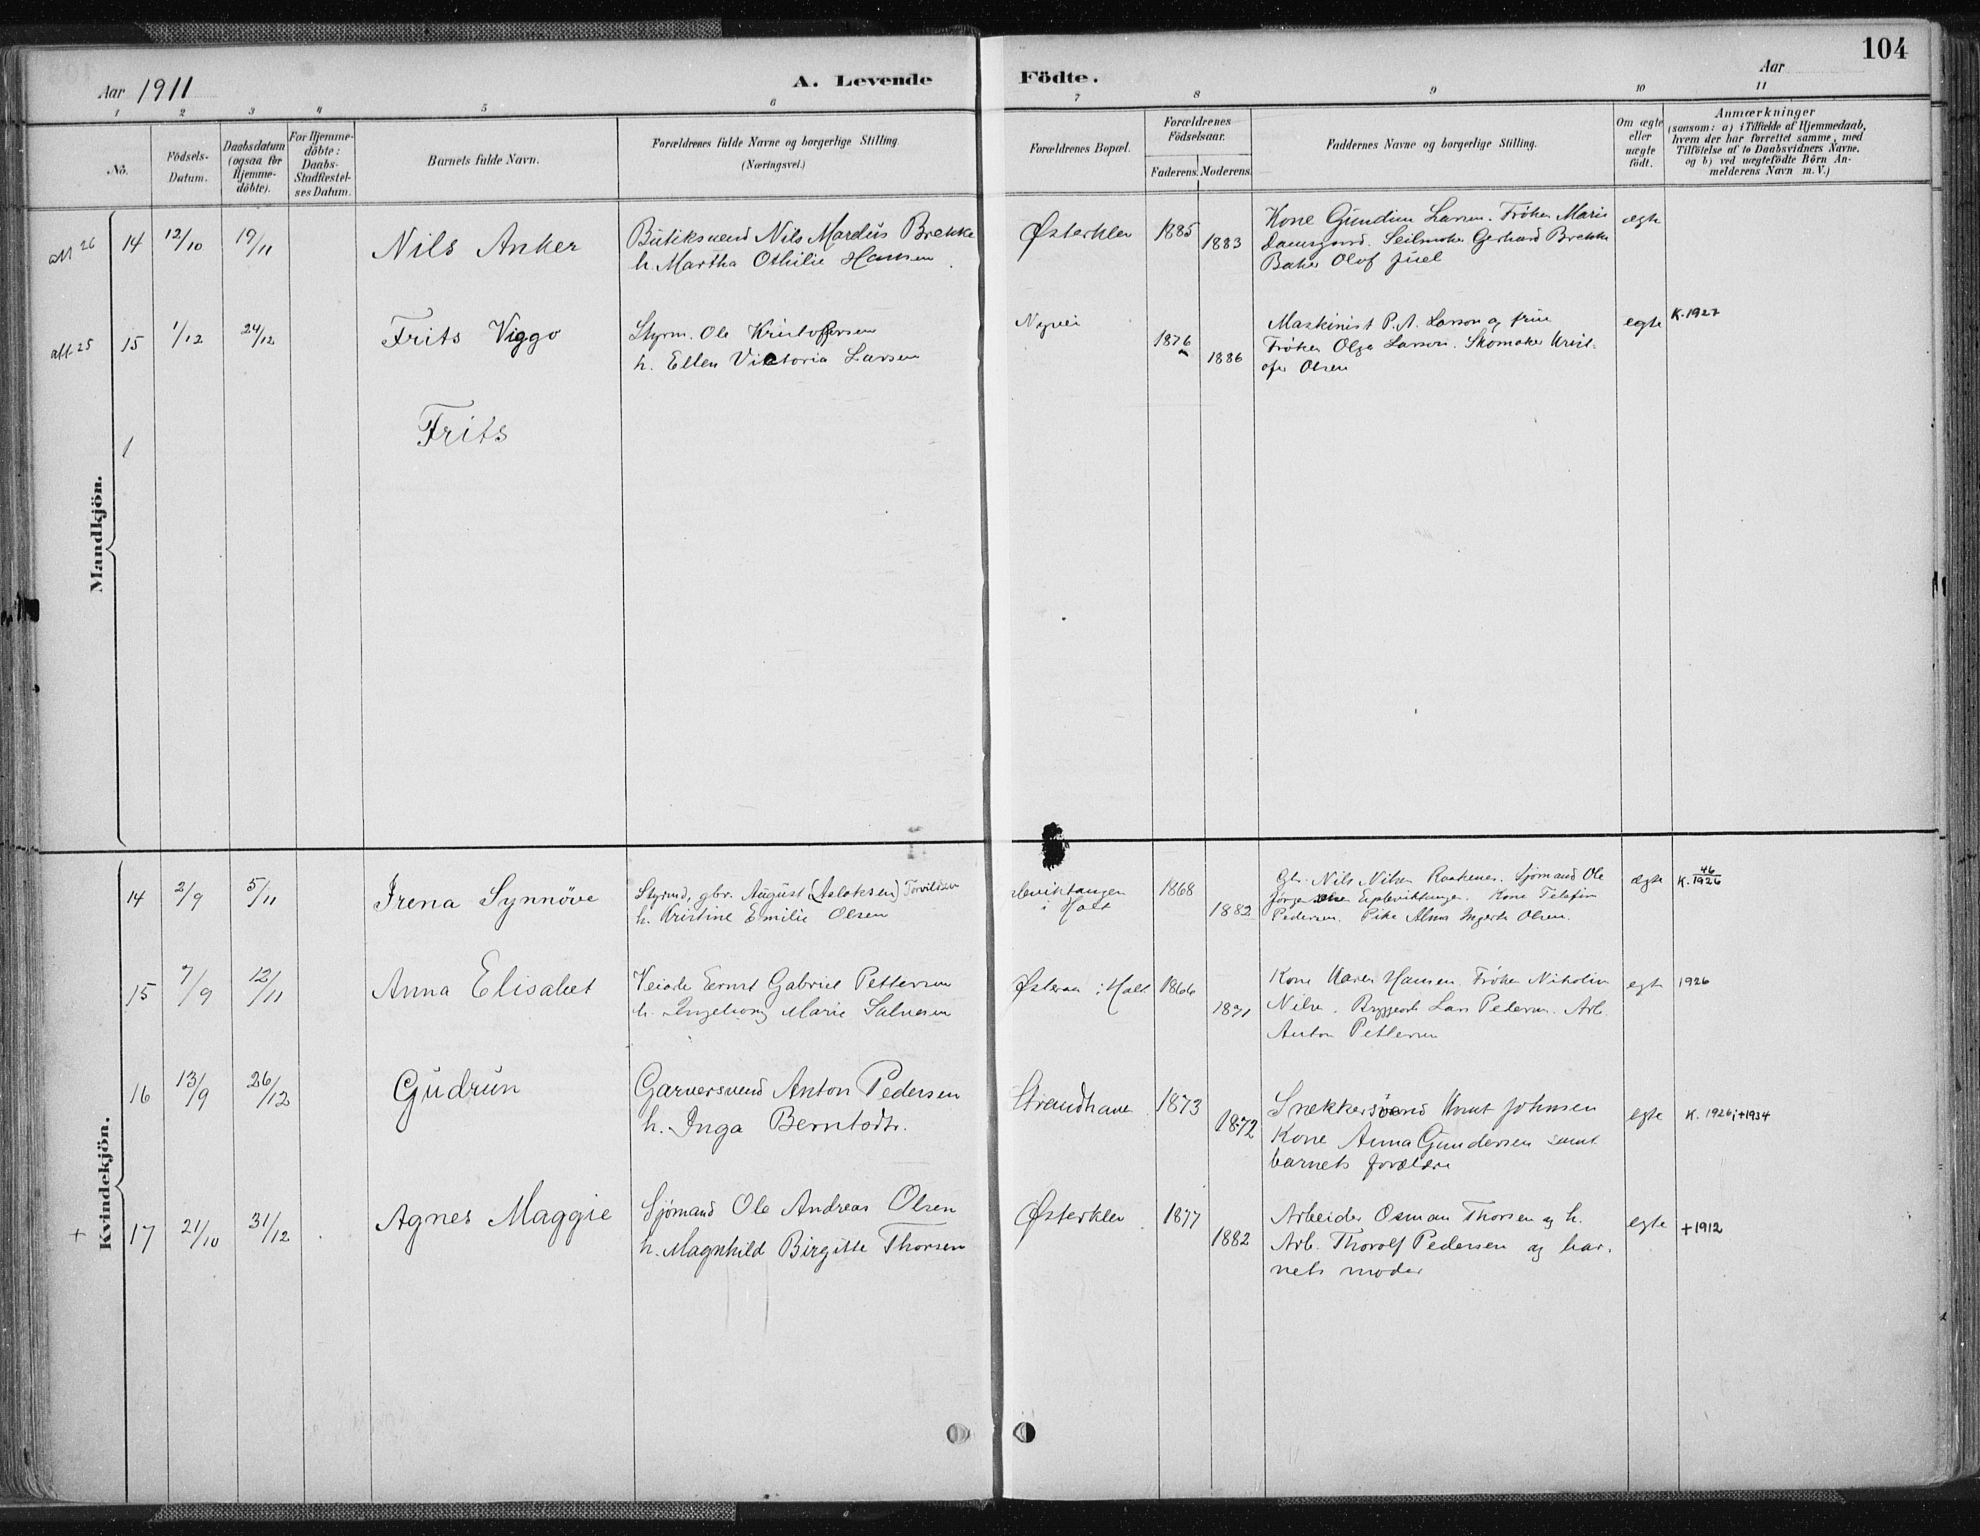 Aar 1911
A. Levende Födte.
Aar
104
1 2 3 4 5 6 7 8 9 10 11
No.
Födsels-Datum.
Daabsdatum (ogsaa for Hjemme-döbte).
For Hjemme-döbte: Daabs-Stadfæstel-ses Datum.
Barnets fulde Navn.
Forældrenes fulde Navne og borgerlige Stilling. (Næringsvei.)
Forældrenes Bopæl.
Forældrenes Födselsaar.
Faderens. Moderens.
Faddernes Navne og borgerlige Stilling.
Om ægte eller uægte födt.
Anmærkninger
(saasom: a) i Tilfælde af Hjemmedaab,
hvem der har forrettet samme, med
Tilföielse af to Daabsvidners Navne,
og b) ved uægtefödte Börn An-
melderens Navn m. V.)
Mandkjön.
att 26 14 12/10 19/11 Nils Anker
Butiksvend Nils Mardus Brekke
h. Martha Othilie Hansen
Østerklev 1885 1883
Kone Gundine Larsen. Frøken Marie
Seilmaker Gerhard Brekke
Baker Olof Juel
ægte
att 25 15 1/12 24/12 Frits Viggo
Styrm. Ole Kristofersen
h. Ellen Viktoria Larsen
Nyvei 1876 1886
Maskinist P. A. Larson og frue
Frøken Olga Larson. Skomaker Krist-
ofer Olsen
egte K. 1927
1 Frits
Kvindekjön.
14 2/9 5/11 Irena Synnöve
Styrmd, gbr. August (Aslaksen) Torvildsen
h. Kristine Emilie Olsen
i Holt 1868 1882
Gbr. Nils Nilsen Raakenes. Sjømand Ole
Jørgensen Epleviktangen. Kone Telefine
Pedersen. Pike Alma Ingerte Olsen.
ægte K. 46/1926
15 7/9 12/11 Anna Elisabet
Gabriel Pettersen
h. Ingeborg Marie Salvesen
Østeraa i Holt 1866 1871
Kone Karen Hansen. Frøken Nikoline
Nilsen. Lars Pedersen. Arb.
Anton Pettersen
egte 1926
16 13/9 26/12 Gudrun
Garversvend Anton Pedersen
h. Inga Berntsdtr.
Strandhave 1873 1872
Snekkersvend Knut Johnsen
Kone Anna Gundersen samt
barnets forældre
egte K. 1926; +1934
+ 17 21/10 31/12 Agnes Maggie
Sjømand Ole Andreas Olsen
h. Magnhild Birgitte Thorsen
Østerklev 1877 1882
Arbeider Osman Thorsen og h.
Arb. Thorolf Pedersen og bar-
nets moder
egte +1912